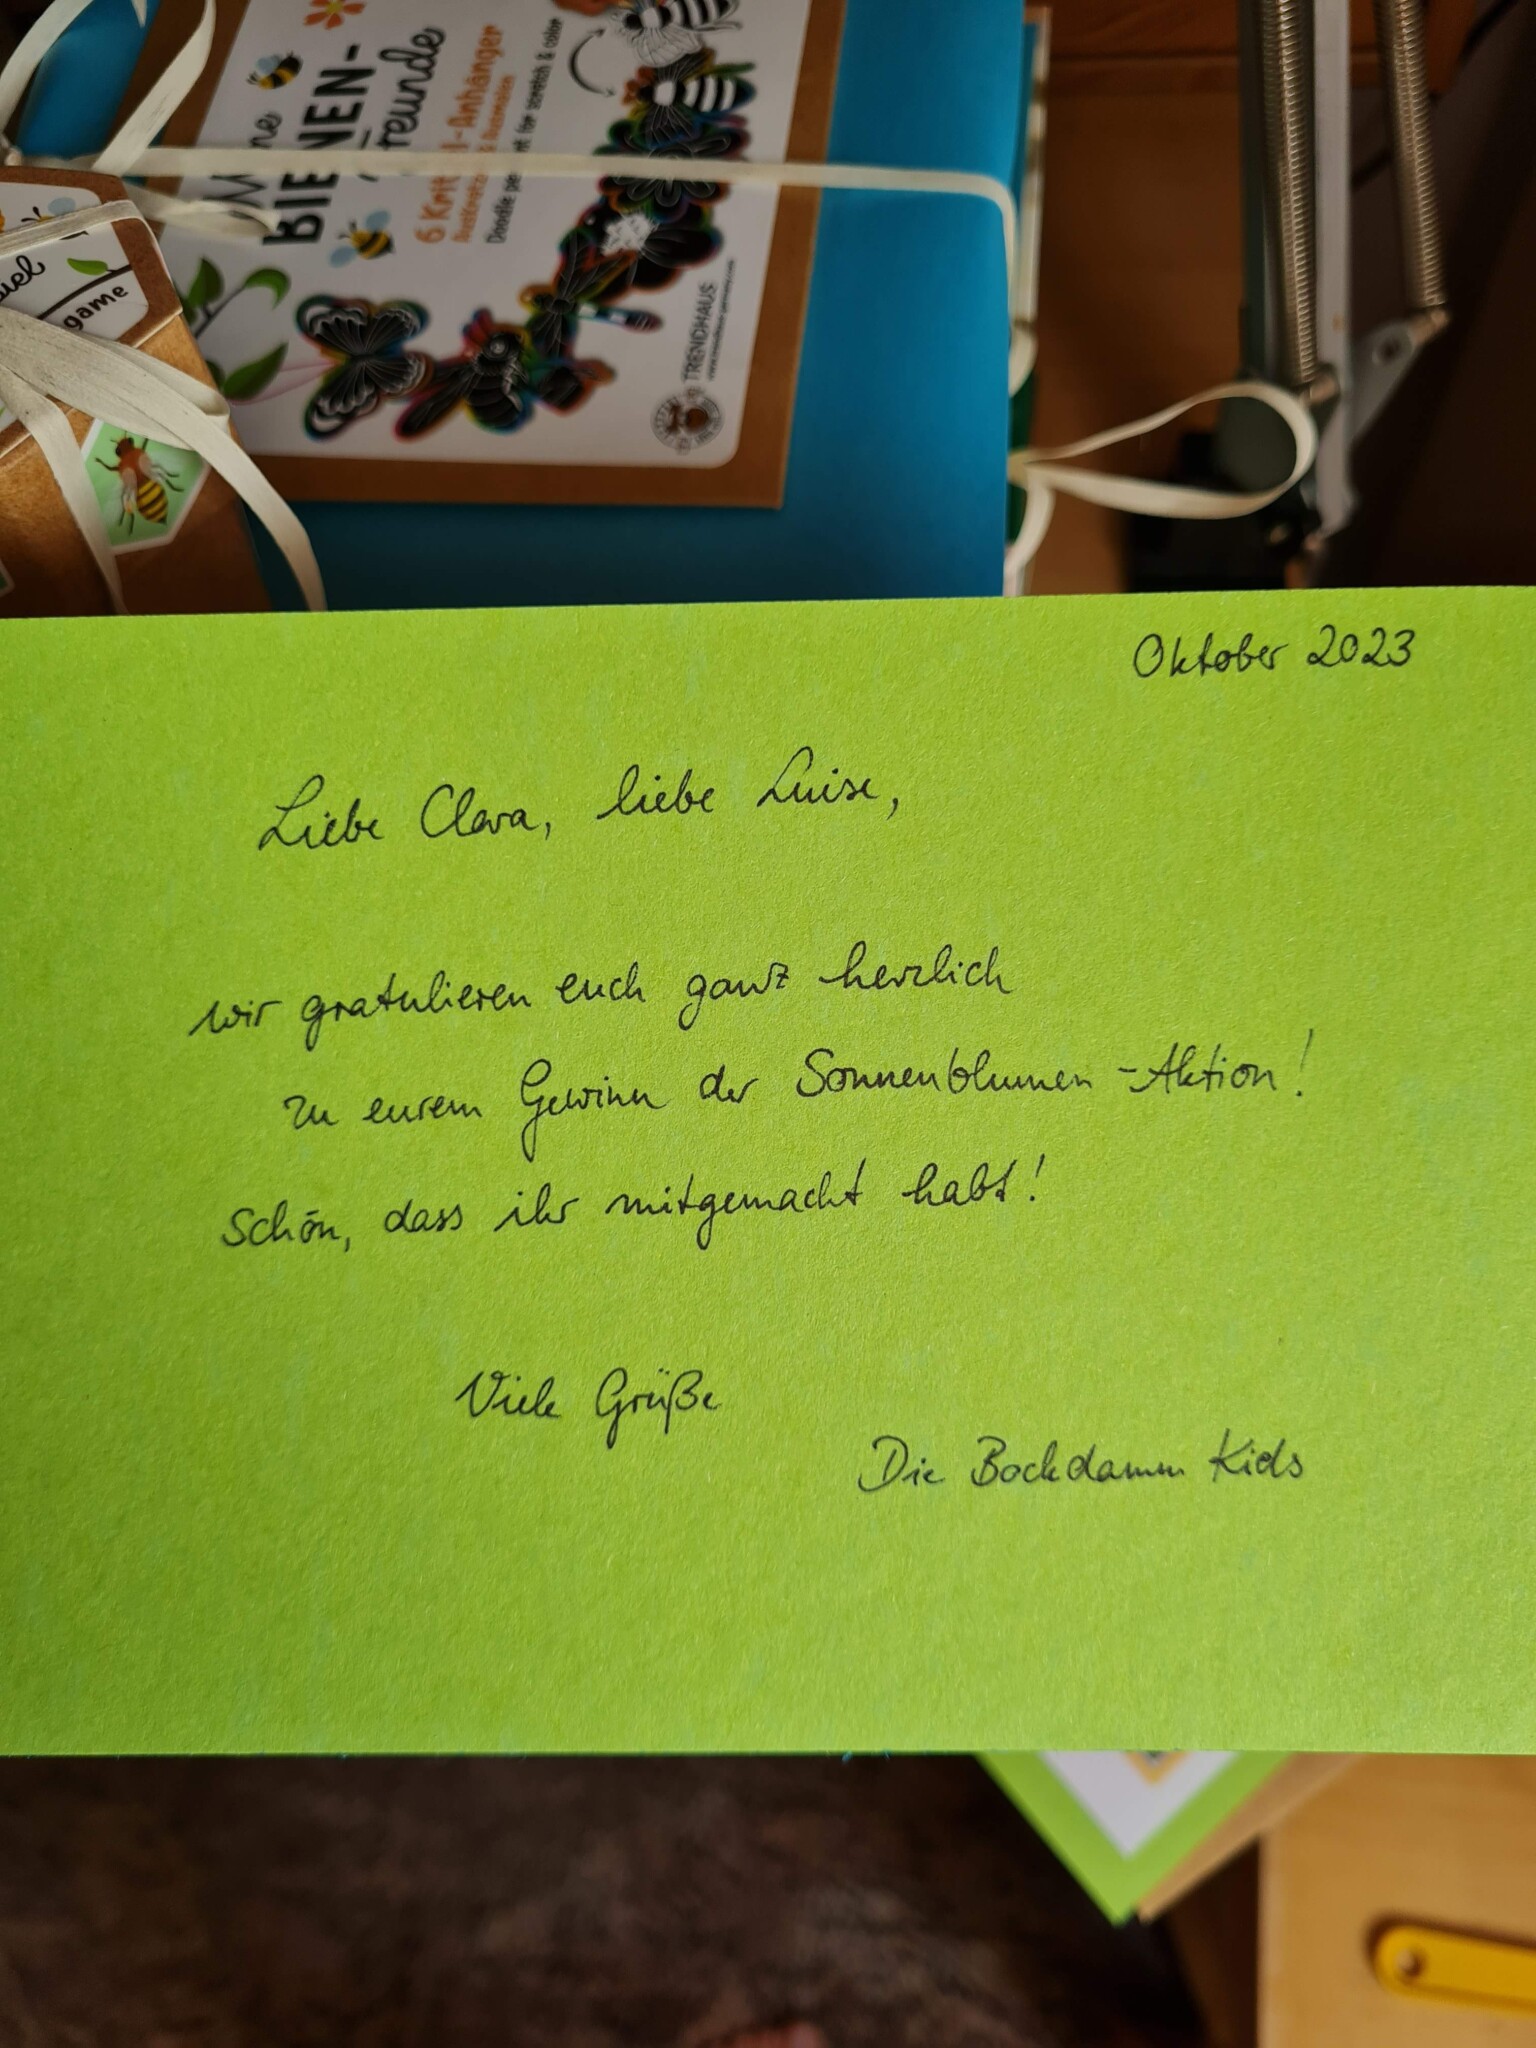 Meine
BIENEN-
freunde
6 Kritzel-Anhänger
TRENDHAUS
game
Oktober 2023
Liebe Clara, liebe Luise,
wir gratulieren euch ganz herzlich
zu eurem Gewinn der Sonnenblumen-Aktion!
Schön, dass ihr mitgemacht habt!
Viele Grüße
Die Bockdamm Kids